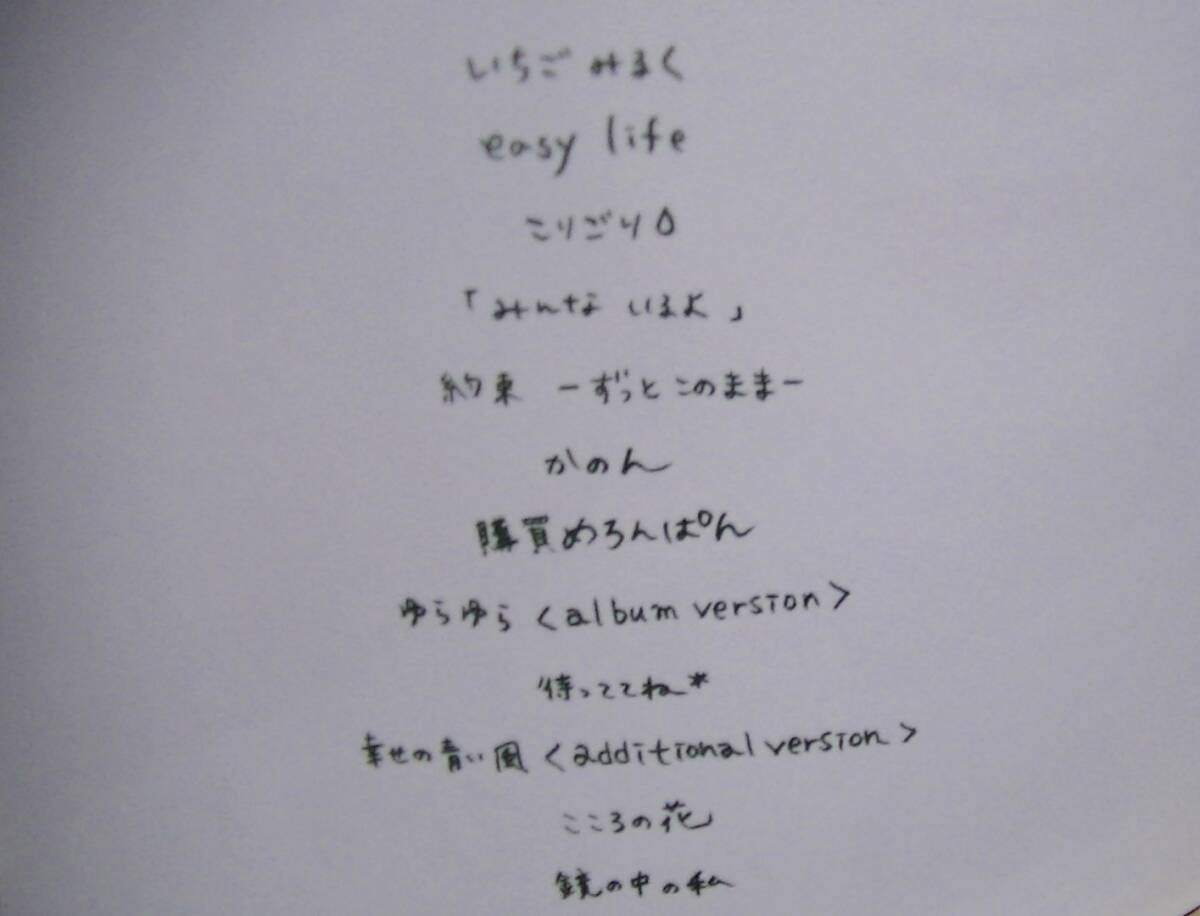 いちごみるく
easy life
こりごり💧
「みんな いるよ」
約束 ーずっと このままー
かのん
購買めろんぱん
ゆらゆら <album version>
待っててね*
幸せの青い風 <additional version>
こころの花
鏡の中の私